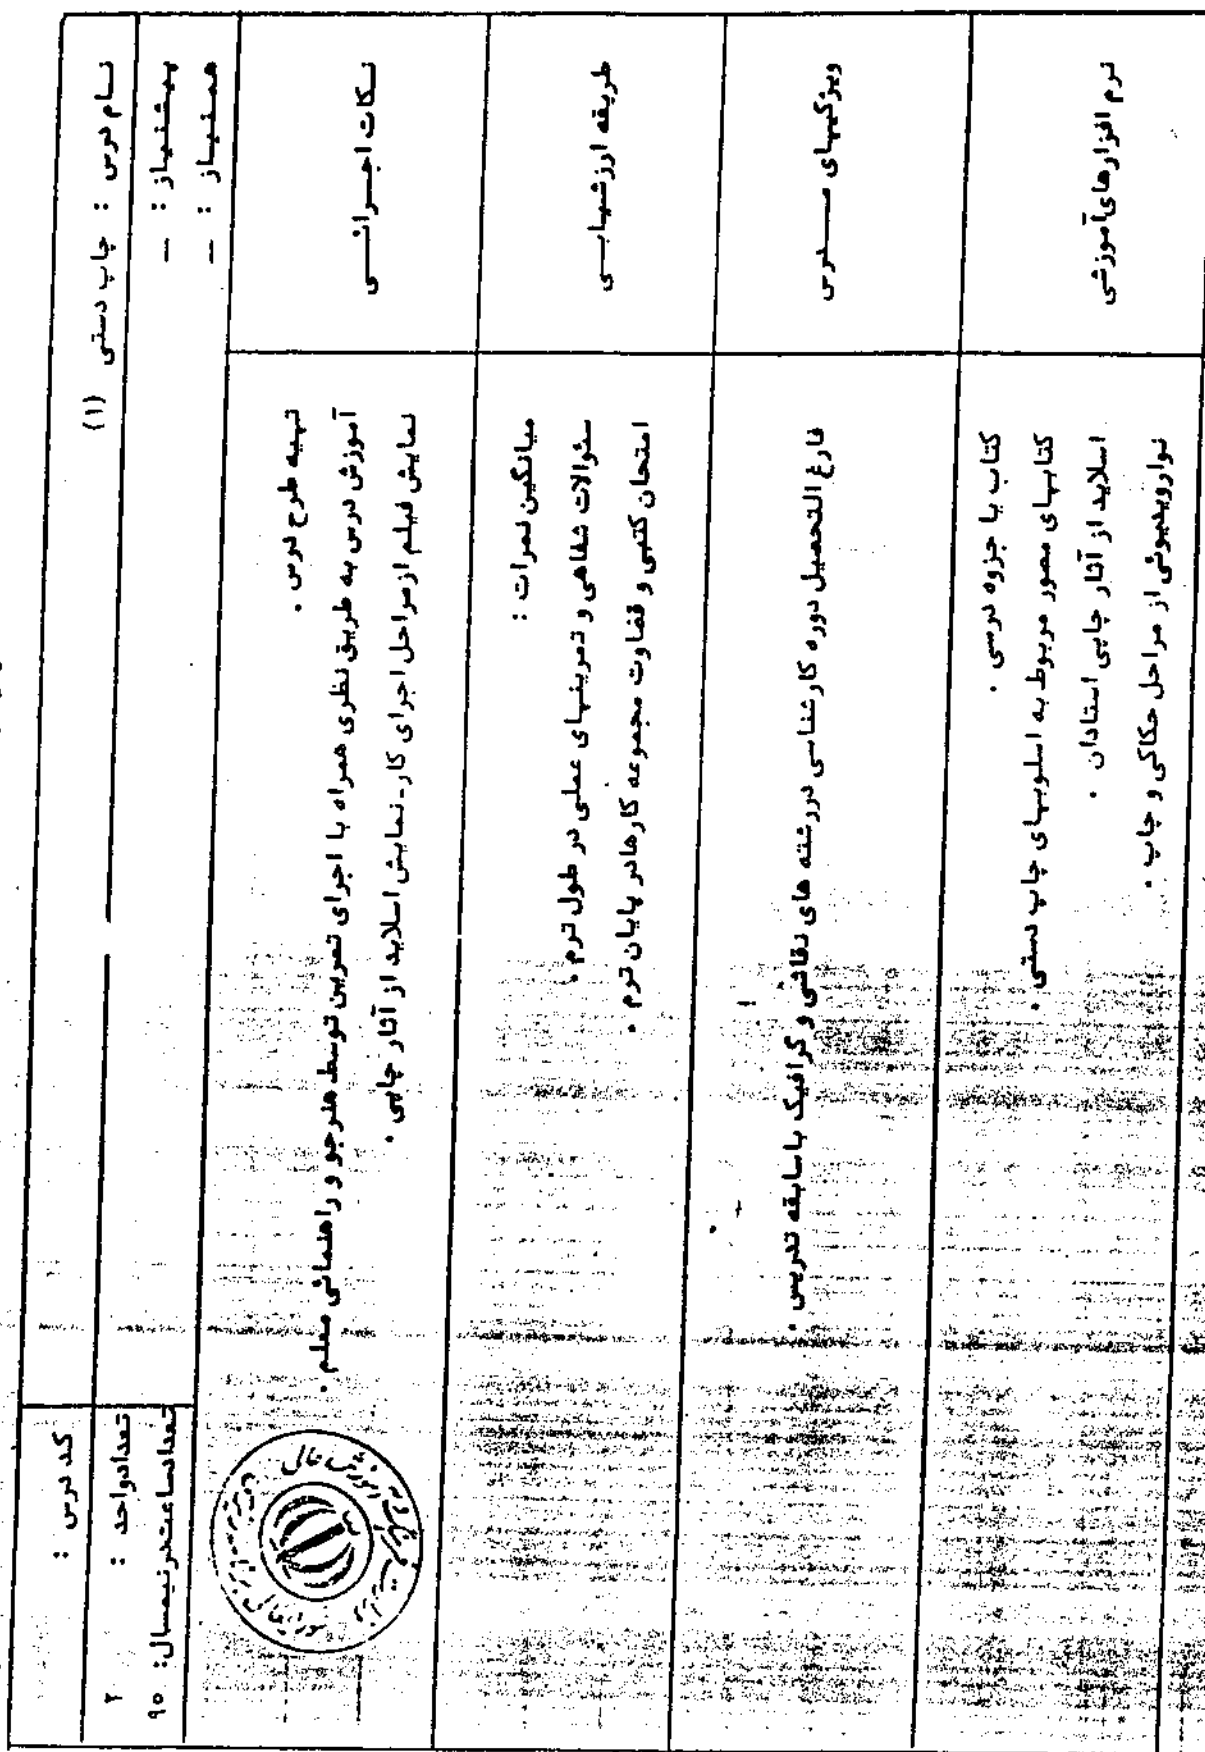 نام درس : چاپ دستی (۱)
پیشنیاز : —
همنیاز : —
کد درس :
تعداد واحد : ۲
تعداد ساعت در نیمسال : ۹۰
نکات اجرائی
تهیه طرح درس .
آموزش درس به طریق نظری همراه با اجرای تمرین توسط هنرجو و راهنمائی معلم .
نمایش فیلم از مراحل اجرای کار - نمایش اسلاید از آثار چاپی .
طریقه ارزشیابی
میانگین نمرات :
سئوالات شفاهی و تمرینهای عملی در طول ترم .
امتحان کتبی و قضاوت مجموعه کارها در پایان ترم .
ویژگیهای مدرس
فارغ التحصیل دوره کارشناسی در رشته های نقاشی و گرافیک با سابقه تدریس .
نرم افزارهای آموزشی
کتاب یا جزوه درسی .
کتابهای مصور مربوط به اسلوبهای چاپ دستی .
اسلاید از آثار چاپی استادان .
نوار ویدیوئی از مراحل حکاکی و چاپ .